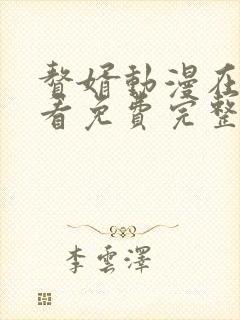 贅婿動漫在
看免費完整
李雲澤